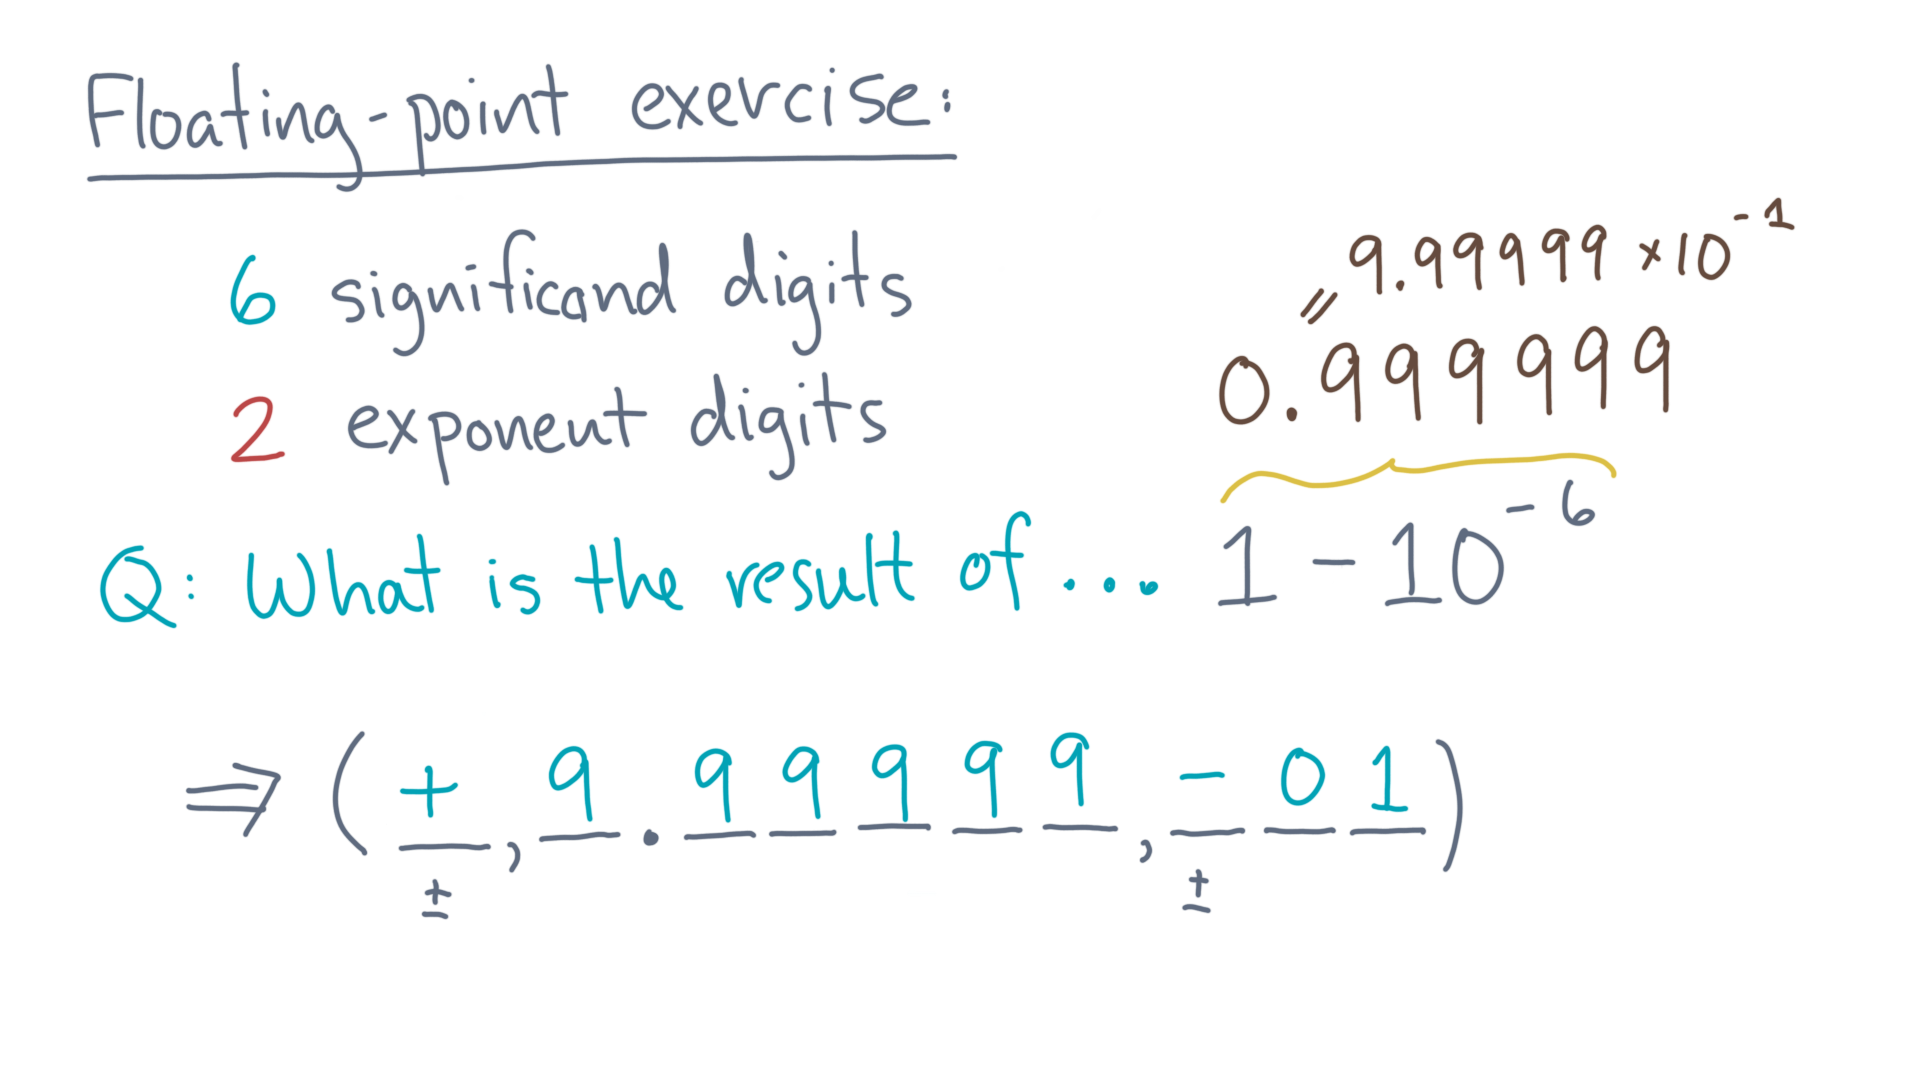 Floating-point exercise:
6 significand digits
2 exponent digits
= 9.99999 × 10^-1
0.999999
Q: What is the result of ... 1 - 10^-6
⇒ ( +, 9.99999, - 0 1 )
± ±